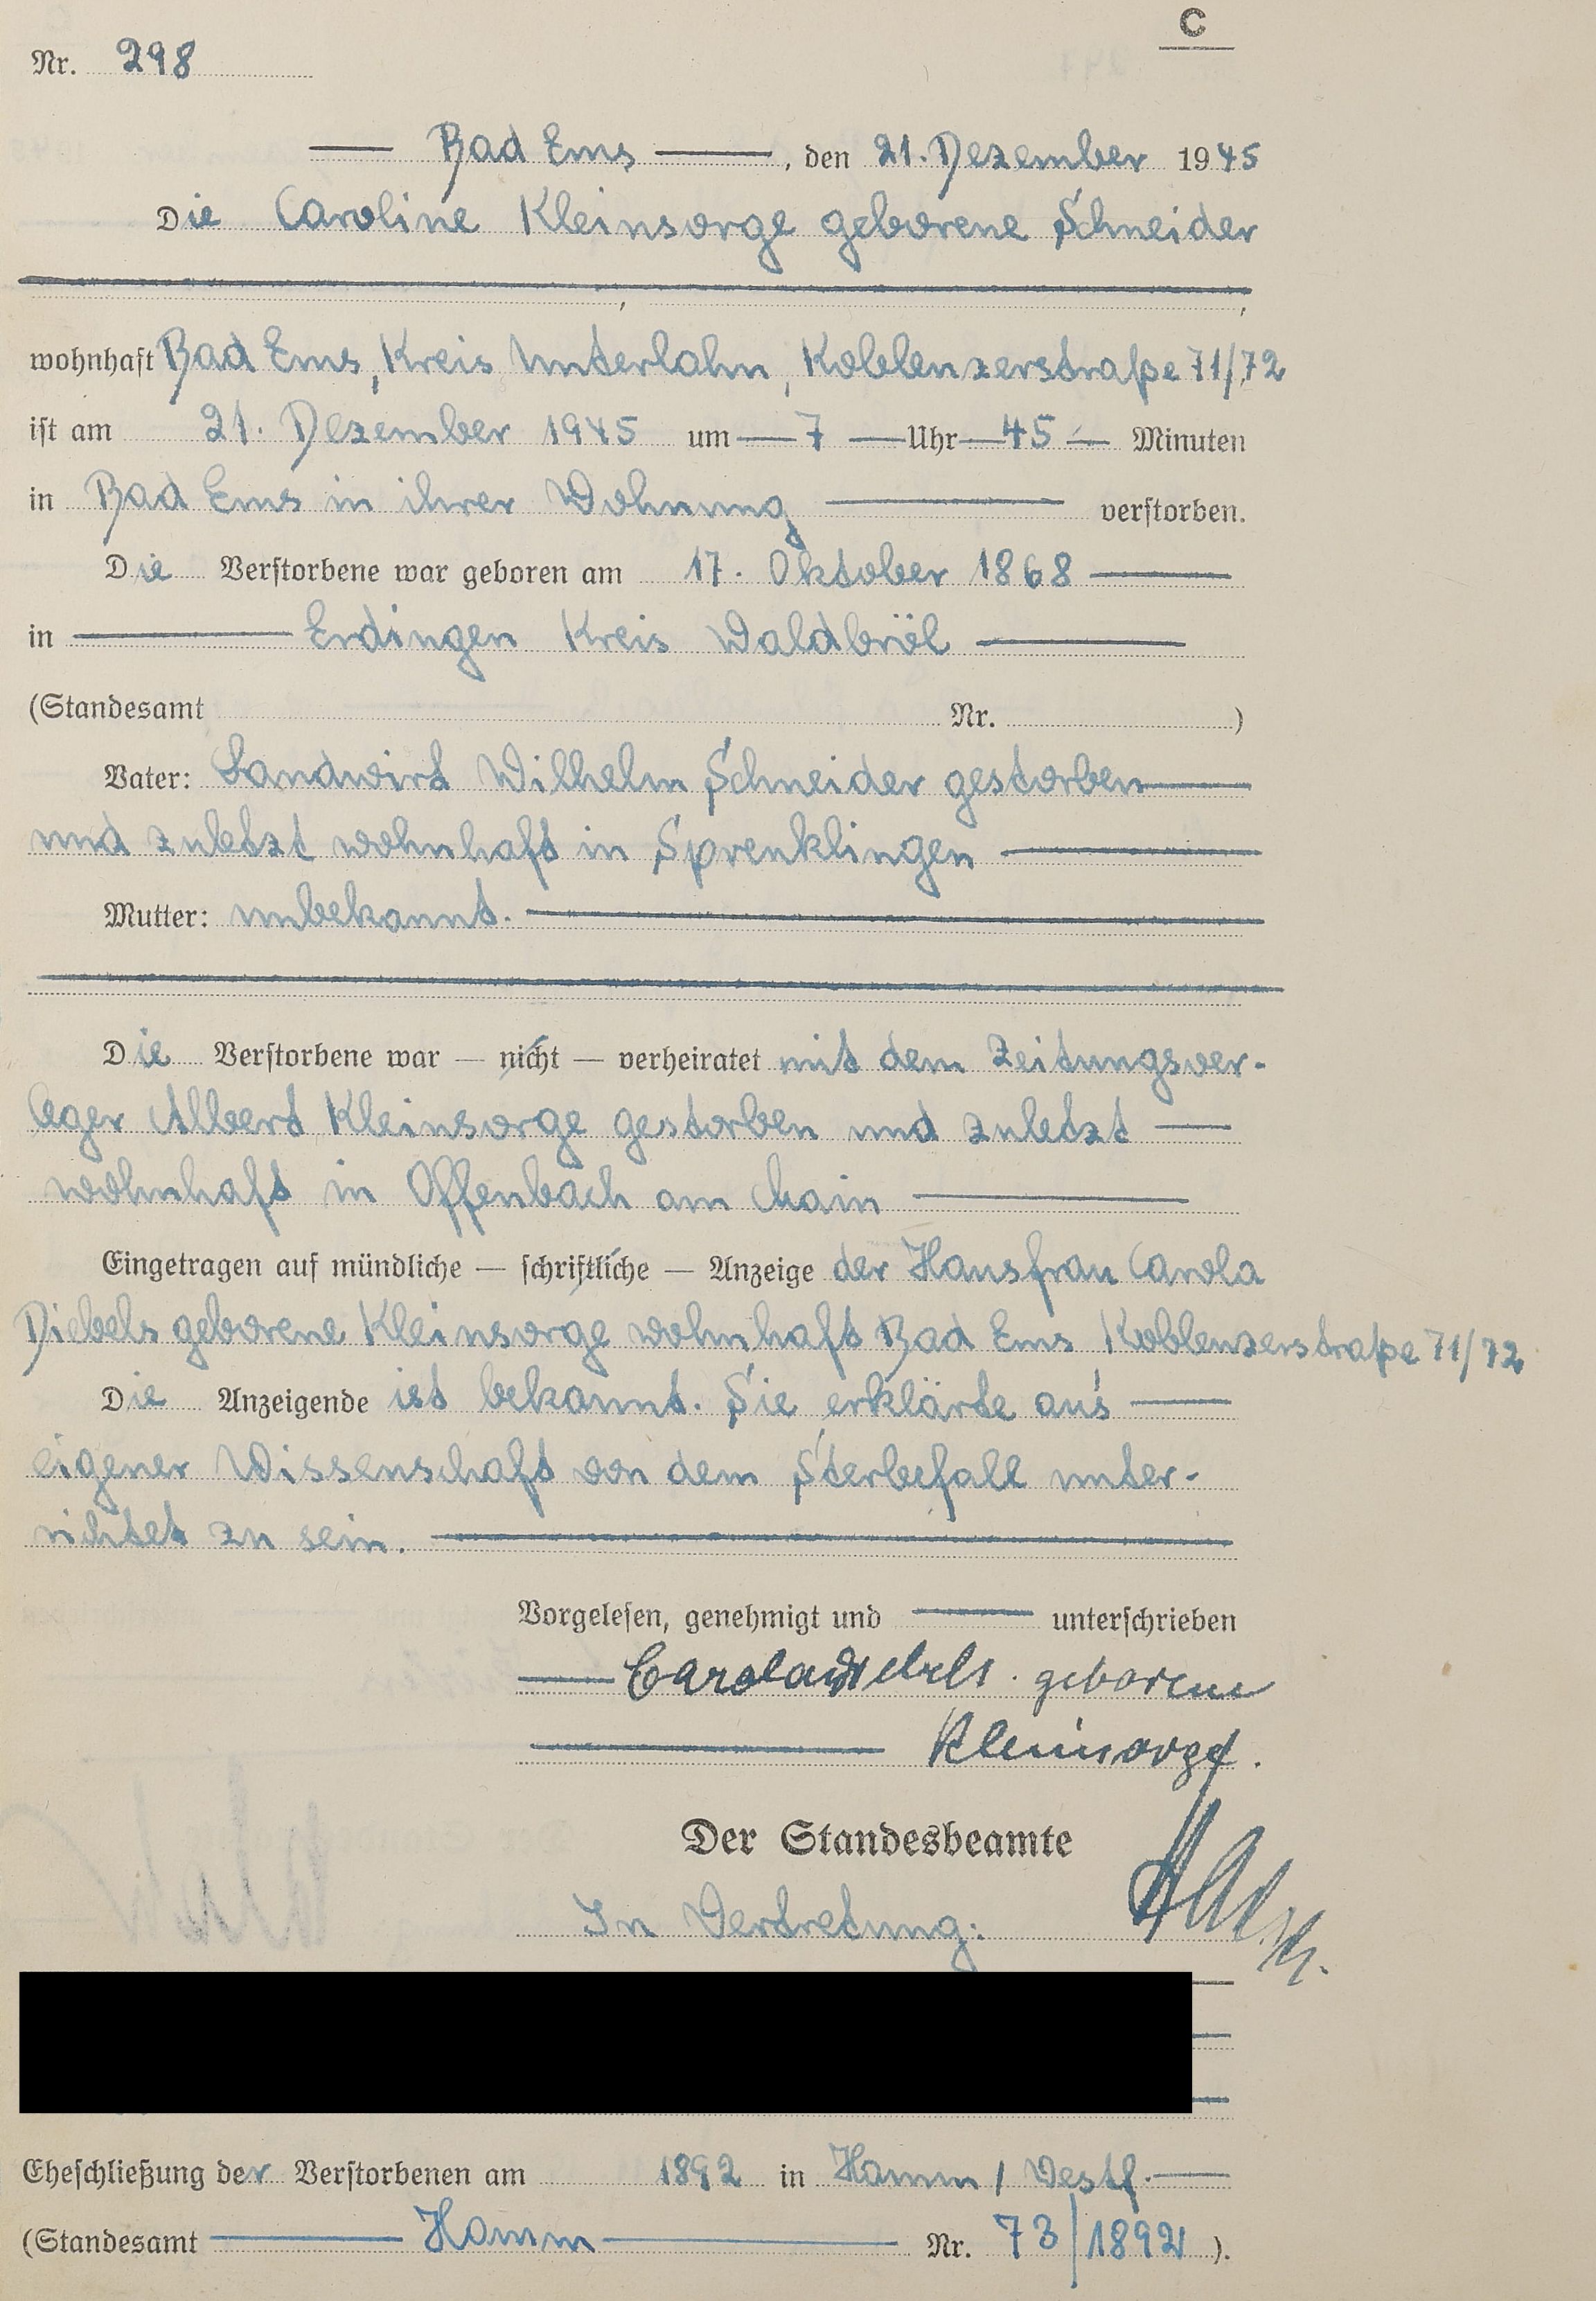 C
Nr. 298
Bad Ems, den 21. Dezember 1945
Die Caroline Kleinsorge geborene Schneider
wohnhaft Bad Ems, Kreis Unterlahn, Koblenzerstraße 71/72
ist am 21. Dezember 1945 um 7 Uhr 45 Minuten
in Bad Ems in ihrer Wohnung verstorben.
Die Verstorbene war geboren am 17. Oktober 1868
in Erdingen Kreis Waldbröl
(Standesamt Nr. )
Vater: Landwirt Wilhelm Schneider gestorben
und zuletzt wohnhaft in Sprenklingen
Mutter: unbekannt.
Die Verstorbene war — nicht — verheiratet mit dem Zeitungsver-
leger Albert Kleinsorge gestorben und zuletzt
wohnhaft in Offenbach am Main
Eingetragen auf mündliche — schriftliche — Anzeige der Hausfrau Carola
Diebels geborene Kleinsorge wohnhaft Bad Ems Koblenzerstraße 71/72
Die Anzeigende ist bekannt. Sie erklärte aus
eigener Wissenschaft von dem Sterbefall unter-
richtet zu sein.
Vorgelesen, genehmigt und unterschrieben
Carola Diebels geborene
Kleinsorge.
Der Standesbeamte
In Vertretung:
Eheschließung der Verstorbenen am 1892 in Hamm / Westf.
(Standesamt Hamm Nr. 73/1892).